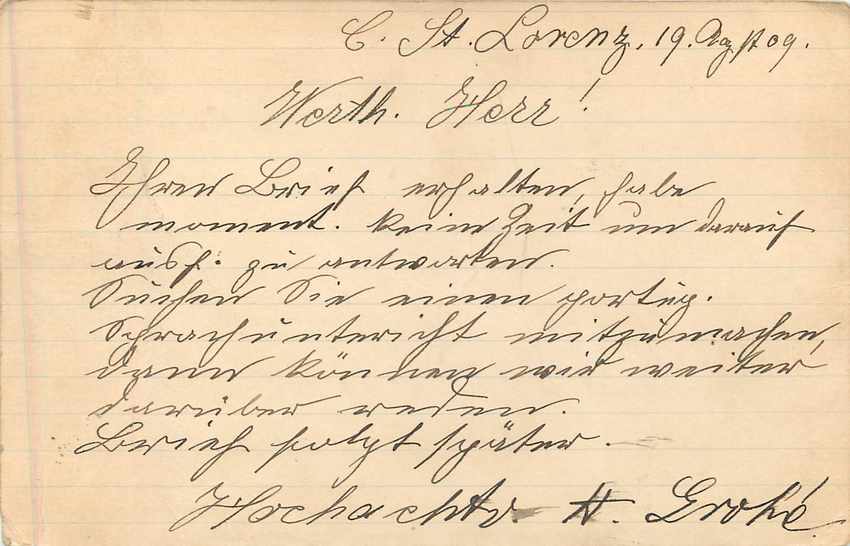 C. St. Lorenz, 19. Ag/st 09.
Werth. Herr!
Ihren Brief erhalten, habe
moment. keine Zeit um darauf
ausf. zu antworten.
Suchen Sie einen portug.
Sprachunterricht mitzumachen,
dann können wir weiter
darüber reden.
Brief folgt später.
Hochachtv. A. Grohé